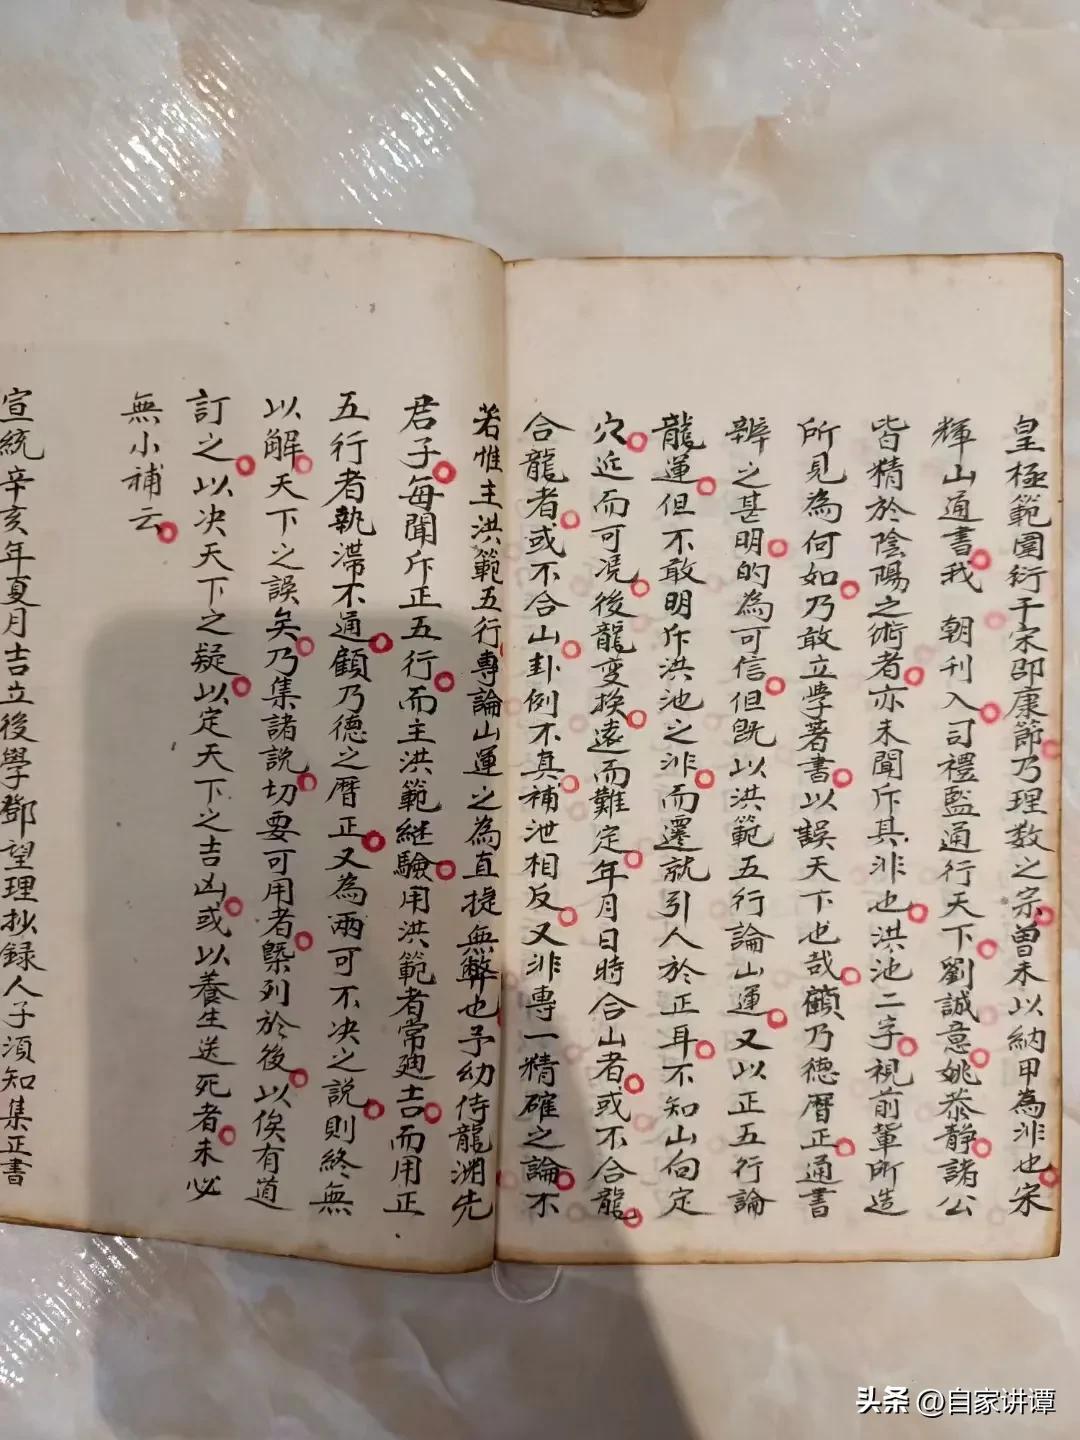 皇極範圍衍于宋邵康節乃理数之宗曾未以納甲為非也宋
輝山通書我朝刊入司禮監通行天下劉誠意姚恭靜諸公
皆精於陰陽之術者亦未聞斥其非也洪池二字視前輩所造
所見為何如乃敢立學著書以誤天下也哉顧乃德曆正通書
辨之甚明的為可信但既以洪範五行論山運又以正五行論
龍運但不敢明斥洪池之非而遷就引人於正耳不知山向定
穴近而可凴後龍变换遠而難定年月日時合山者或不合龍
合龍者或不合山卦例不真補泄相反又非專一精確之論不
若惟主洪範五行專論山運之為直捷無弊也予幼侍龍渊先
君子每聞斥正五行而主洪範継驗用洪範者常廸吉而用正
五行者執滯不通顧乃德之曆正又為兩可不决之説則終無
以解天下之誤矣乃集諸説切要可用者槩列於後以俟有道
訂之以决天下之疑以定天下之吉凶或以養生送死者未必
無小補云
宣統辛亥年夏月吉立後學鄧望理抄録人子須知集正書
头条 @自家讲谭